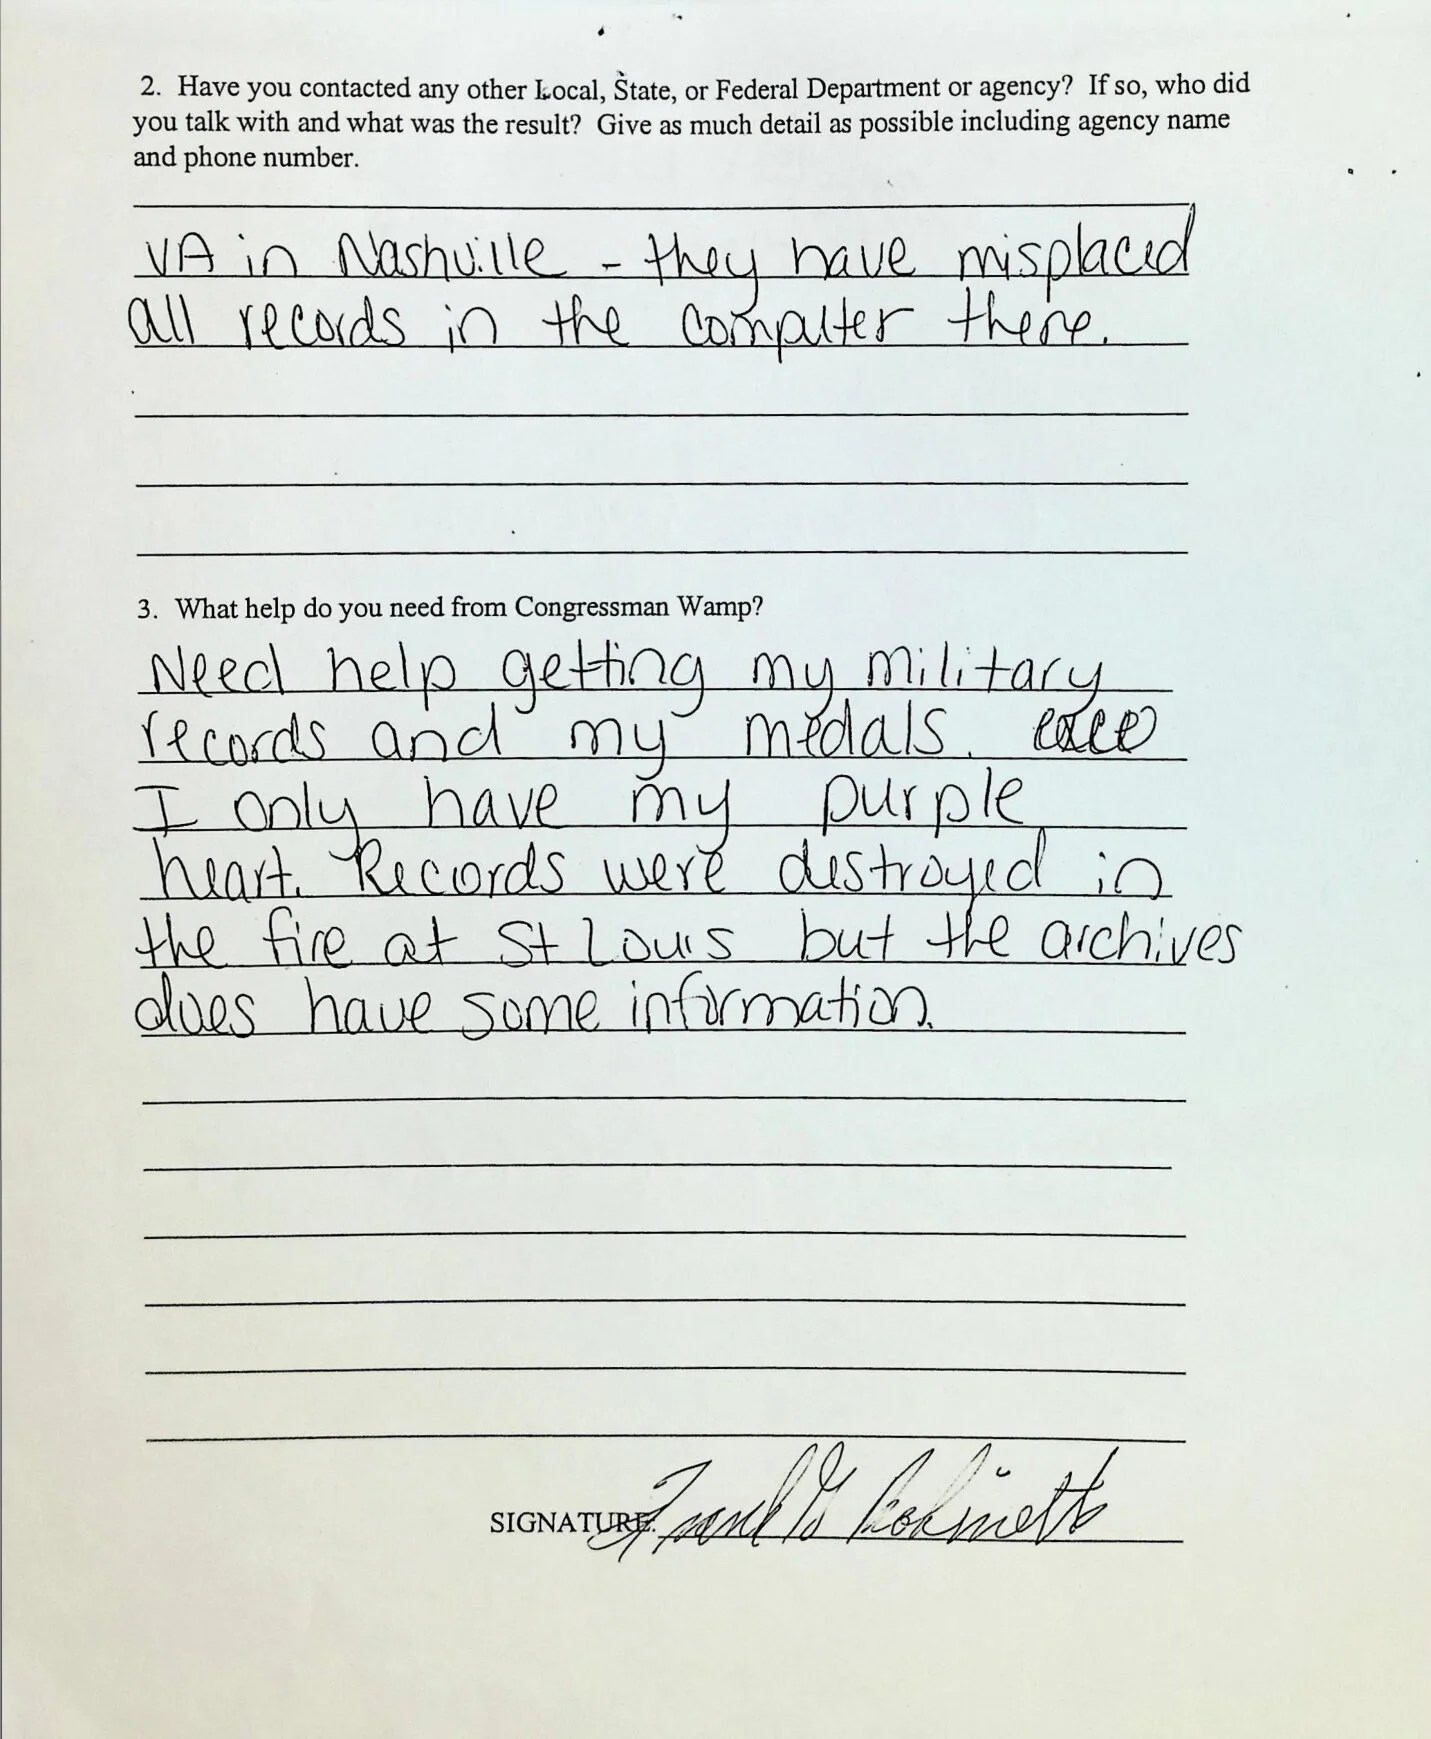 2. Have you contacted any other Local, State, or Federal Department or agency? If so, who did
you talk with and what was the result? Give as much detail as possible including agency name
and phone number.
VA in Nashville - they have misplaced
all records in the computer there.
3. What help do you need from Congressman Wamp?
Need help getting my military
records and my medals.
I only have my purple
heart. Records were destroyed in
the fire at St Louis but the archives
does have some information.
SIGNATURE: Frank G Robinette